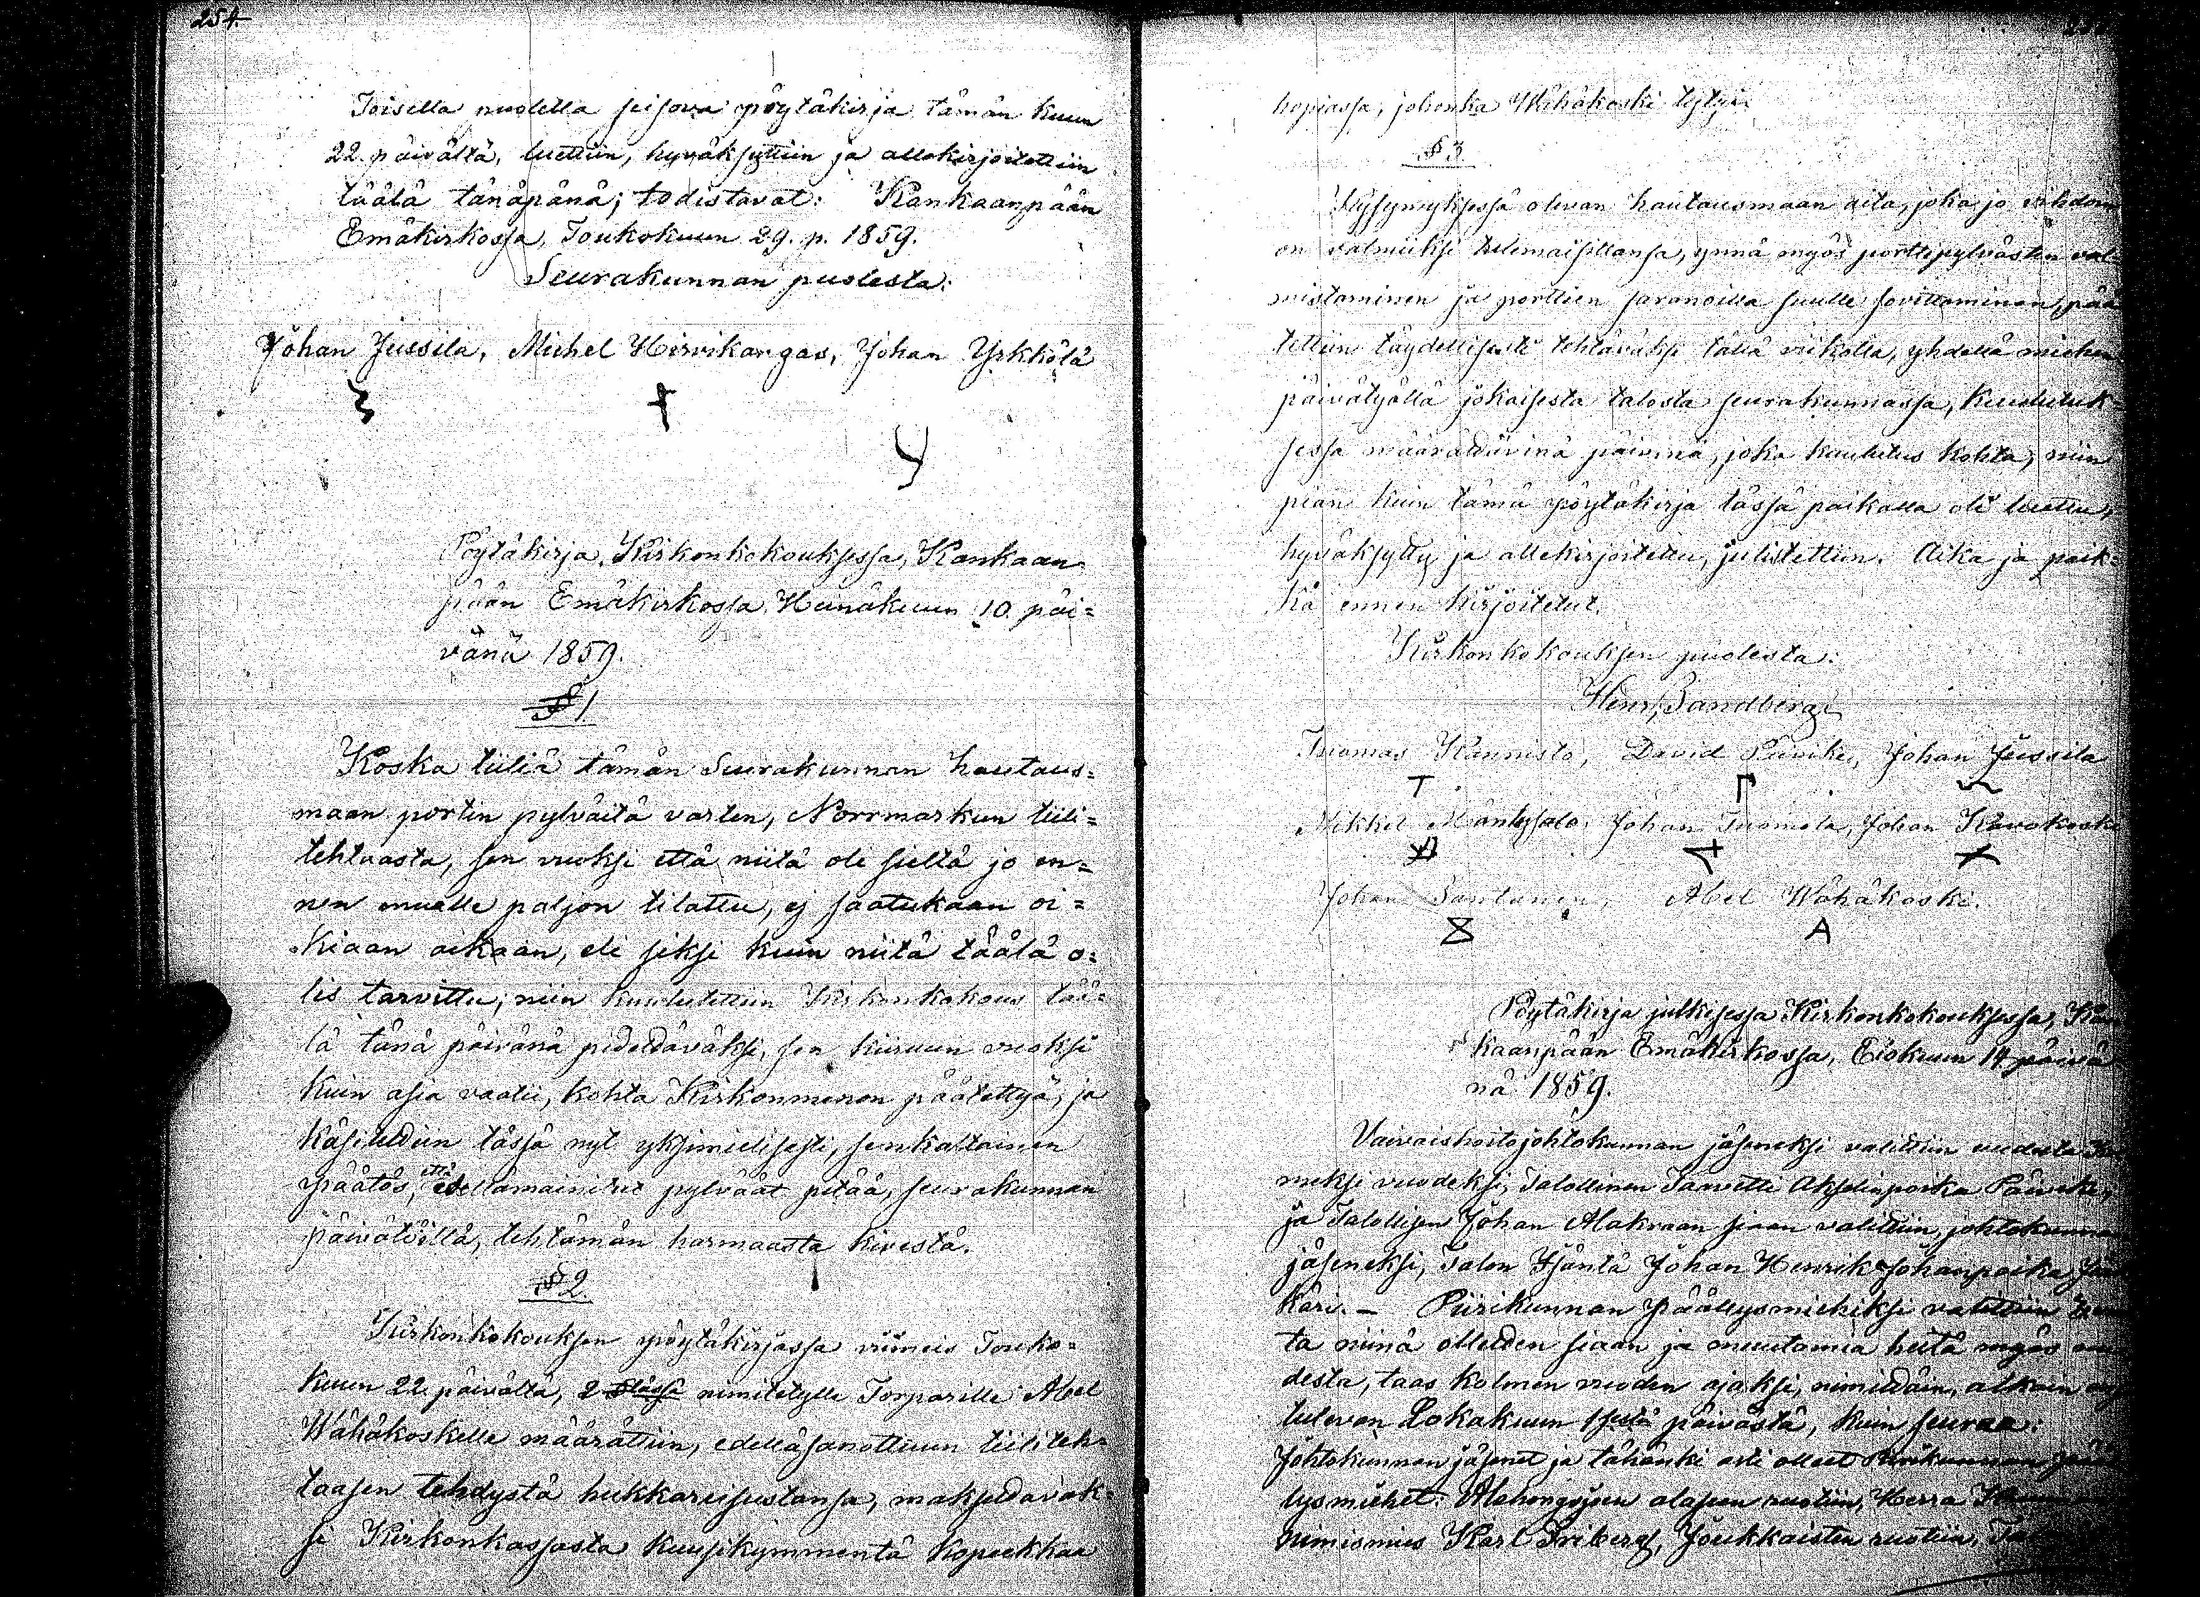 254.
Toisella puolella seisova pöytäkirja tämän kuun
22. päivältä, luettiin, hyväksyttiin ja allekirjoitettiin
täälä tänäpänä; todistavat: Kankaanpään
Emäkirkossa, Toukokuun 29. p. 1859.
Seurakunnan puolesta:
Johan Jussila, Michel Hirvikangas, Johan Yrkkölä
Pöytäkirja, Kirkonkokouksessa, Kankaan-
pään Emäkirkossa, Heinäkuun 10. päi=
vänä 1859.
§ 1.
Koska tiiliä tämän Seurakunnan hautaus=
maan portin pylväitä varten, Norrmarkun tiili=
tehtaasta, sen vuoksi että niitä oli sieltä jo en=
nen mualle paljon tilattu, ej saatukaan oi=
kiaan aikaan, eli siksi kuin niitä täälä o=
lis tarvittu; niin kuulutettiin Kirkonkokous tää=
lä tänä päivänä pidettäväksi, sen kiiruun vuoksi
kuin asia vaatii, kohta Kirkonmenon päätettyä, ja
käsiteldiin tässä nyt yksimielisesti, senkaltainen
päätös, että edellämainitut pylväät pitää, seurakunnan
päivätöillä, tehtämän harmaasta kivestä.
§ 2.
Kirkonkokouksen pöytäkirjassa viimeis Touko=
kuun 22. päivältä, 2 §lässä nimitetylle Torparille Abel
Wähäkoskelle määrättiin, edelläsanottuun tiiliteh=
taasen tehdystä hukkareisustansa, maksettavak=
si Kirkonkassasta kuusikymmentä kopeekkaa
hopiassa, johonka Wähäkoski tytyi.
§ 3.
Kysymyksessä olevan hautausmaan aita, joka jo vihdoin
on valmiiksi tulemaisillansa, ynnä myös porttipylvästen val=
mistaminen ja porttien saranoilla suulle sovittaminen, pää
tettiin täydellisesti tehtäväksi tällä viikolla, yhdellä miehen
päivätyöllä jokaisesta talosta seurakunnassa, kuulutuk=
sessa määrättävinä päivinä, joka kuulutus kohta, niin
pian kuin tämä pöytäkirja tässä paikalla oli luettu,
hyväksytty ja allekirjoitettu, julistettiin. Aika ja paik=
ka ennen kirjoitetut.
Kirkonkokouksen puolesta:
Henr. Sandberg
Tuomas Kannisto, David Päivike, Johan Jussila
Mikkel Mäntysalo, Johan Tuomela, Johan Kavokoski
Johan Santanen, Abel Wähäkoski.
T
A
Pöytäkirja julkisessa Kirkonkokouksessa, Kan
kaanpään Emäkirkossa, Elokuun 14 päivä
nä 1859.
Vaivaishoitojohtokunnan jäseneksi valittiin uudesta
meksi vuodeksi, Talollinen Taavetti Akselinpoika Päivike,
ja Talollisen Johan Alakraan siaan valittiin, johtokunna
jäseneksi, Talon Isäntä Johan Henrik Johanpoika
käri. – Piirikunnan päällysmiehiksi valittiin
ta niinä olletten siaan ja muutamia heitä myös uu
desta, taas kolmen vuoden ajaksi, nimittäin, alkain
tulevan Lokakuun 1stä päivästä, kuin seuraa:
Johtokunnan jäsenet ja tähänki asti olleet Piirikunnan pääl
lysmiehet: Alahongojoen alaseen ruotiin, Herra
Nimismies Karl Friberg, Joukkaisten ruotiin,